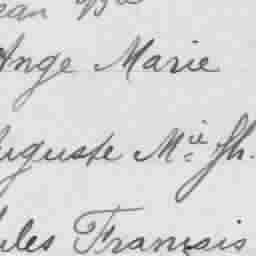 ean Bte
Ange Marie
uguste M.ie Jh.
ules Francois